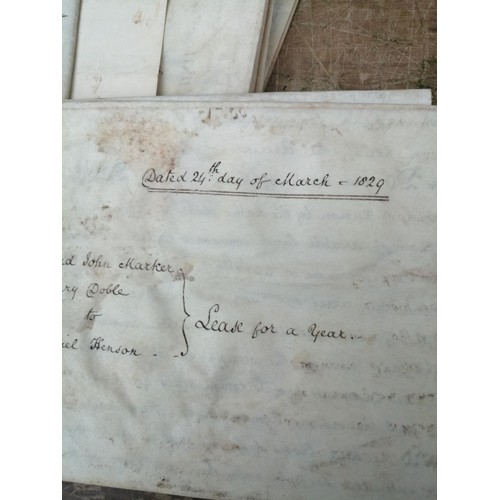 Dated 24th day of March - 1829
John Marker
Doble
to
Henson -
Lease for a Year.